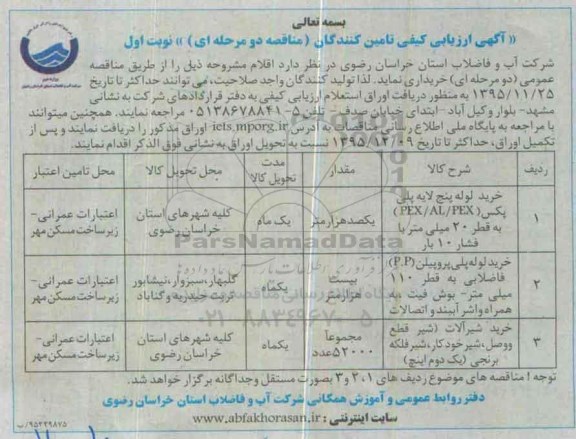 بسمه تعالی
« آگهی ارزیابی کیفی تامین کنندگان ( مناقصه دو مرحله ای ) » نوبت اول
شرکت آب و فاضلاب استان خراسان رضوی در نظر دارد اقلام مشروحه ذیل را از طریق مناقصه
عمومی (دو مرحله ای) خریداری نماید. لذا تولید کنندگان واجد صلاحیت، می توانند حداکثر تا تاریخ
۱۳۹۵/۱۱/۲۵ به منظور دریافت اوراق استعلام ارزیابی کیفی به دفتر قراردادهای شرکت به نشانی
مشهد- بلوار وکیل آباد- ابتدای خیابان صدف- تلفن ۵-۰۵۱۳۸۶۷۸۸۴۱ مراجعه نمایند. همچنین میتوانند
با مراجعه به پایگاه ملی اطلاع رسانی مناقصات به آدرس iets.mporg.ir اوراق مذکور را دریافت نمایند و پس از
تکمیل اوراق، حداکثر تا تاریخ ۱۳۹۵/۱۲/۰۹ نسبت به تحویل اوراق به نشانی فوق الذکر اقدام نمایند.
ردیف شرح کالا مقدار مدت تحویل کالا محل تحویل کالا محل تامین اعتبار
۱ خرید لوله پنج لایه پلی پکس (PEX/AL/PEX) به قطر ۲۰ میلی متر با فشار ۱۰ بار یکصدهزارمتر یک ماه کلیه شهرهای استان خراسان رضوی اعتبارات عمرانی- زیرساخت مسکن مهر
۲ خرید لوله پلی پروپیلن (P.P) فاضلابی به قطر ۱۱۰ میلی متر- پوش فیت به همراه واشر آببند و اتصالات بیست هزارمتر یکماه گلبهار، سبزوار، نیشابور تربت حیدریه و گناباد اعتبارات عمرانی- زیرساخت مسکن مهر
۳ خرید شیرآلات (شیر قطع ووصل، شیر خودکار، شیر فلکه برنجی (یک دوم اینچ) مجموعاً ۵۲۰۰۰عدد یکماه کلیه شهرهای استان خراسان رضوی اعتبارات عمرانی- زیرساخت مسکن مهر
توجه ! مناقصه های موضوع ردیف های ۱، ۲ و ۳ بصورت مستقل وجداگانه برگزار خواهد شد.
دفتر روابط عمومی و آموزش همگانی شرکت آب و فاضلاب استان خراسان رضوی
سایت اینترنتی : www.abfakhorasan.ir
۹۵۳۳۹۸۷۵/ب
ParsNamadData
۰۲۱-۸۸۳۴۹۶۷۰-۵